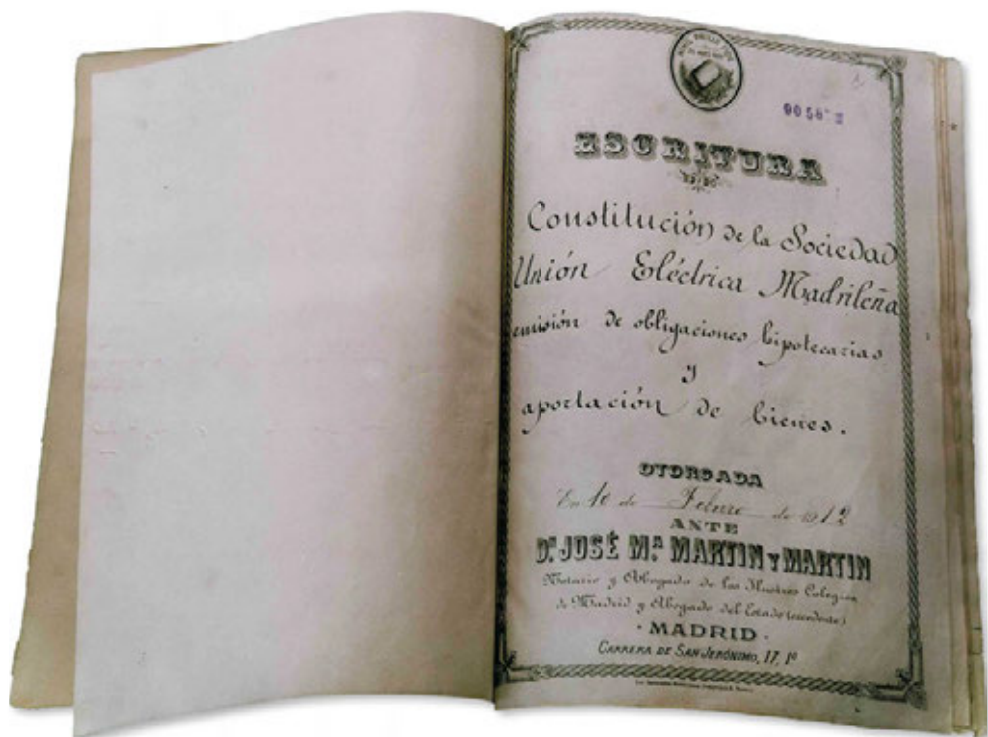 ESCRITURA
DE
Constitución de la Sociedad
Unión Eléctrica Madrileña
emisión de obligaciones hipotecarias
y
aportación de bienes.
OTORGADA
En 10 de Febrero de 1912
ANTE
D. JOSÉ Mª MARTIN Y MARTIN
Notario y Abogado de los Ilustres Colegios
de Madrid y Abogado del Estado (excedente)
· MADRID ·
CARRERA DE SAN JERÓNIMO, 17, 1º